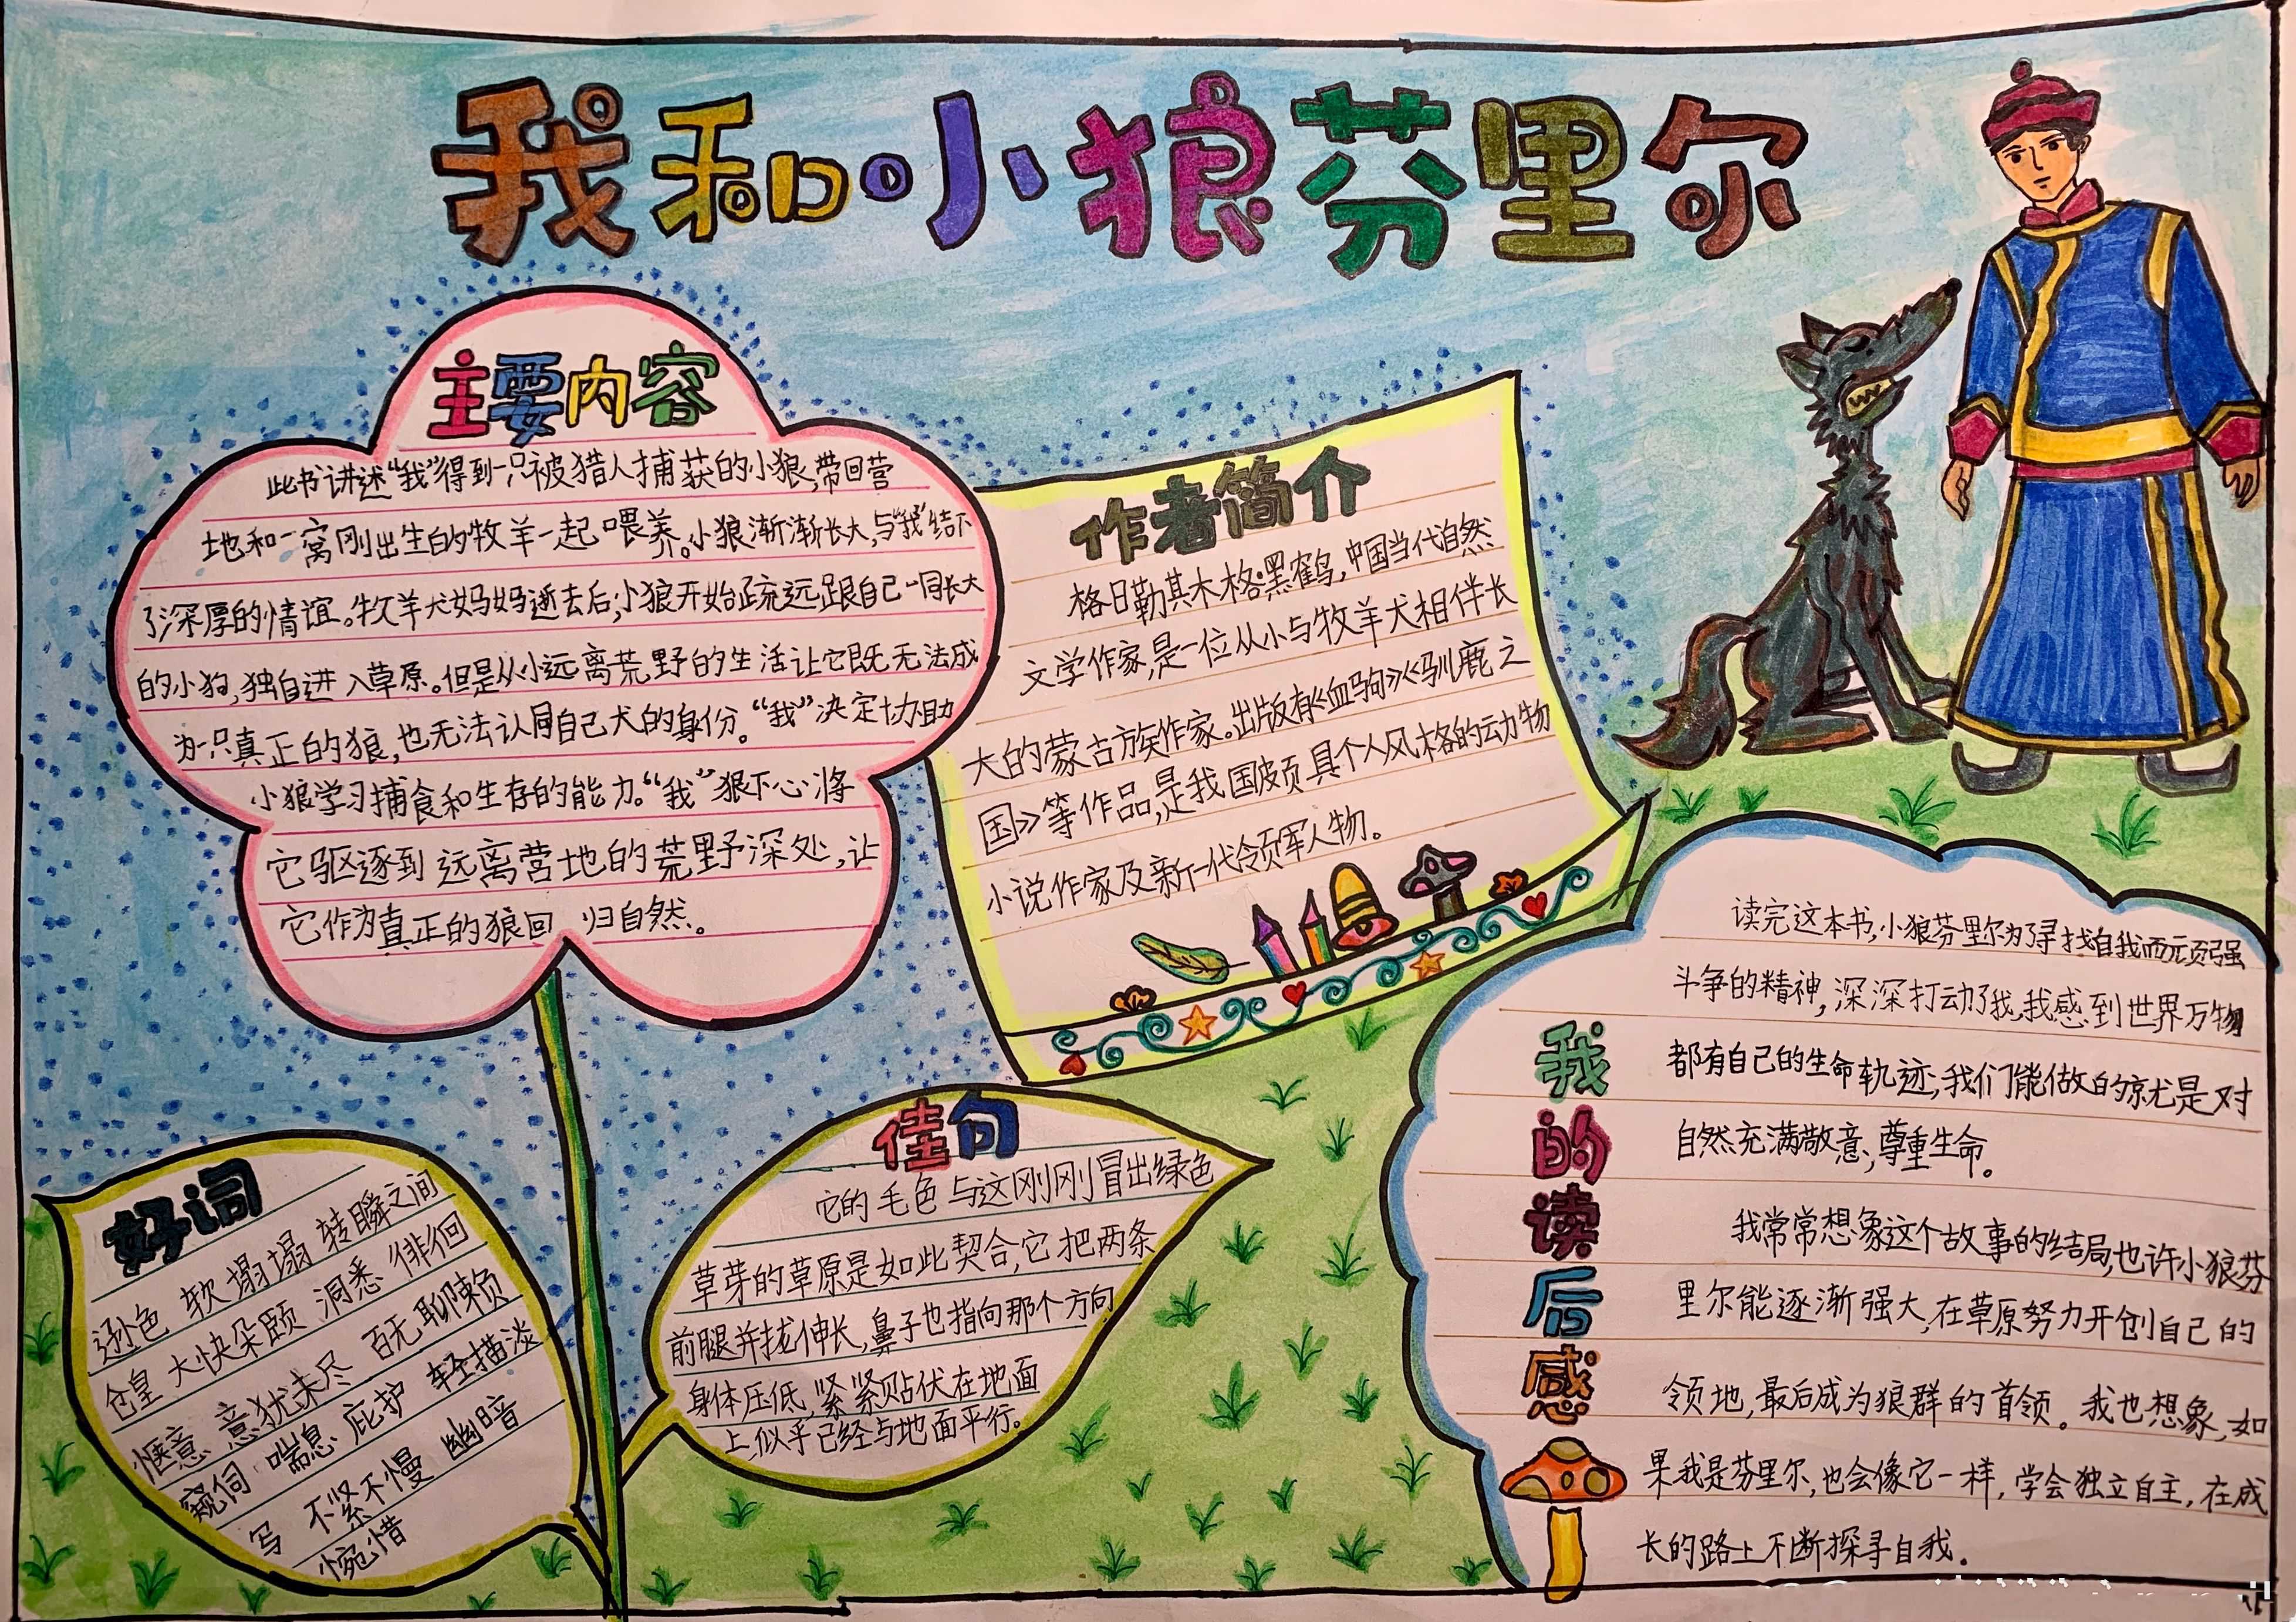 我和小狼芬里尔
主要内容
此书讲述“我”得到一只被猎人捕获的小狼,带回营
地和一窝刚出生的牧羊一起喂养。小狼渐渐长大,与“我”结下
了深厚的情谊。牧羊犬妈妈逝去后,小狼开始疏远跟自己一同长大
的小狗,独自进入草原。但是从小远离荒野的生活让它既无法成
为一只真正的狼,也无法认同自己犬的身份。“我”决定协助
小狼学习捕食和生存的能力。“我”狠下心将
它驱逐到远离营地的荒野深处,让
它作为真正的狼回归自然。
作者简介
格日勒其木格·黑鹤,中国当代自然
文学作家,是一位从小与牧羊犬相伴长
大的蒙古族作家。出版有《血驹》《驯鹿之
国》等作品,是我国颇具个人风格的动物
小说作家及新一代领军人物。
好词
逊色 软塌塌 转瞬之间
仓皇 大快朵颐 洞悉 徘徊
惬意 意犹未尽 百无聊赖
窥伺 喘息 庇护 轻描淡
写 不紧不慢 幽暗
惋惜
佳句
它的毛色与这刚刚冒出绿色
草芽的草原是如此契合,它把两条
前腿并拢伸长,鼻子也指向那个方向,
身体压低,紧紧贴伏在地面
上,似乎已经与地面平行。
我的读后感
读完这本书,小狼芬里尔为了寻找自我而顽强
斗争的精神,深深打动了我,我感到世界万物
都有自己的生命轨迹;我们能做的就是对
自然充满敬意,尊重生命。
我常常想象这个故事的结局,也许小狼芬
里尔能逐渐强大,在草原努力开创自己的
领地,最后成为狼群的首领。我也想象,如
果我是芬里尔,也会像它一样,学会独立自主,在成
长的路上不断探寻自我。